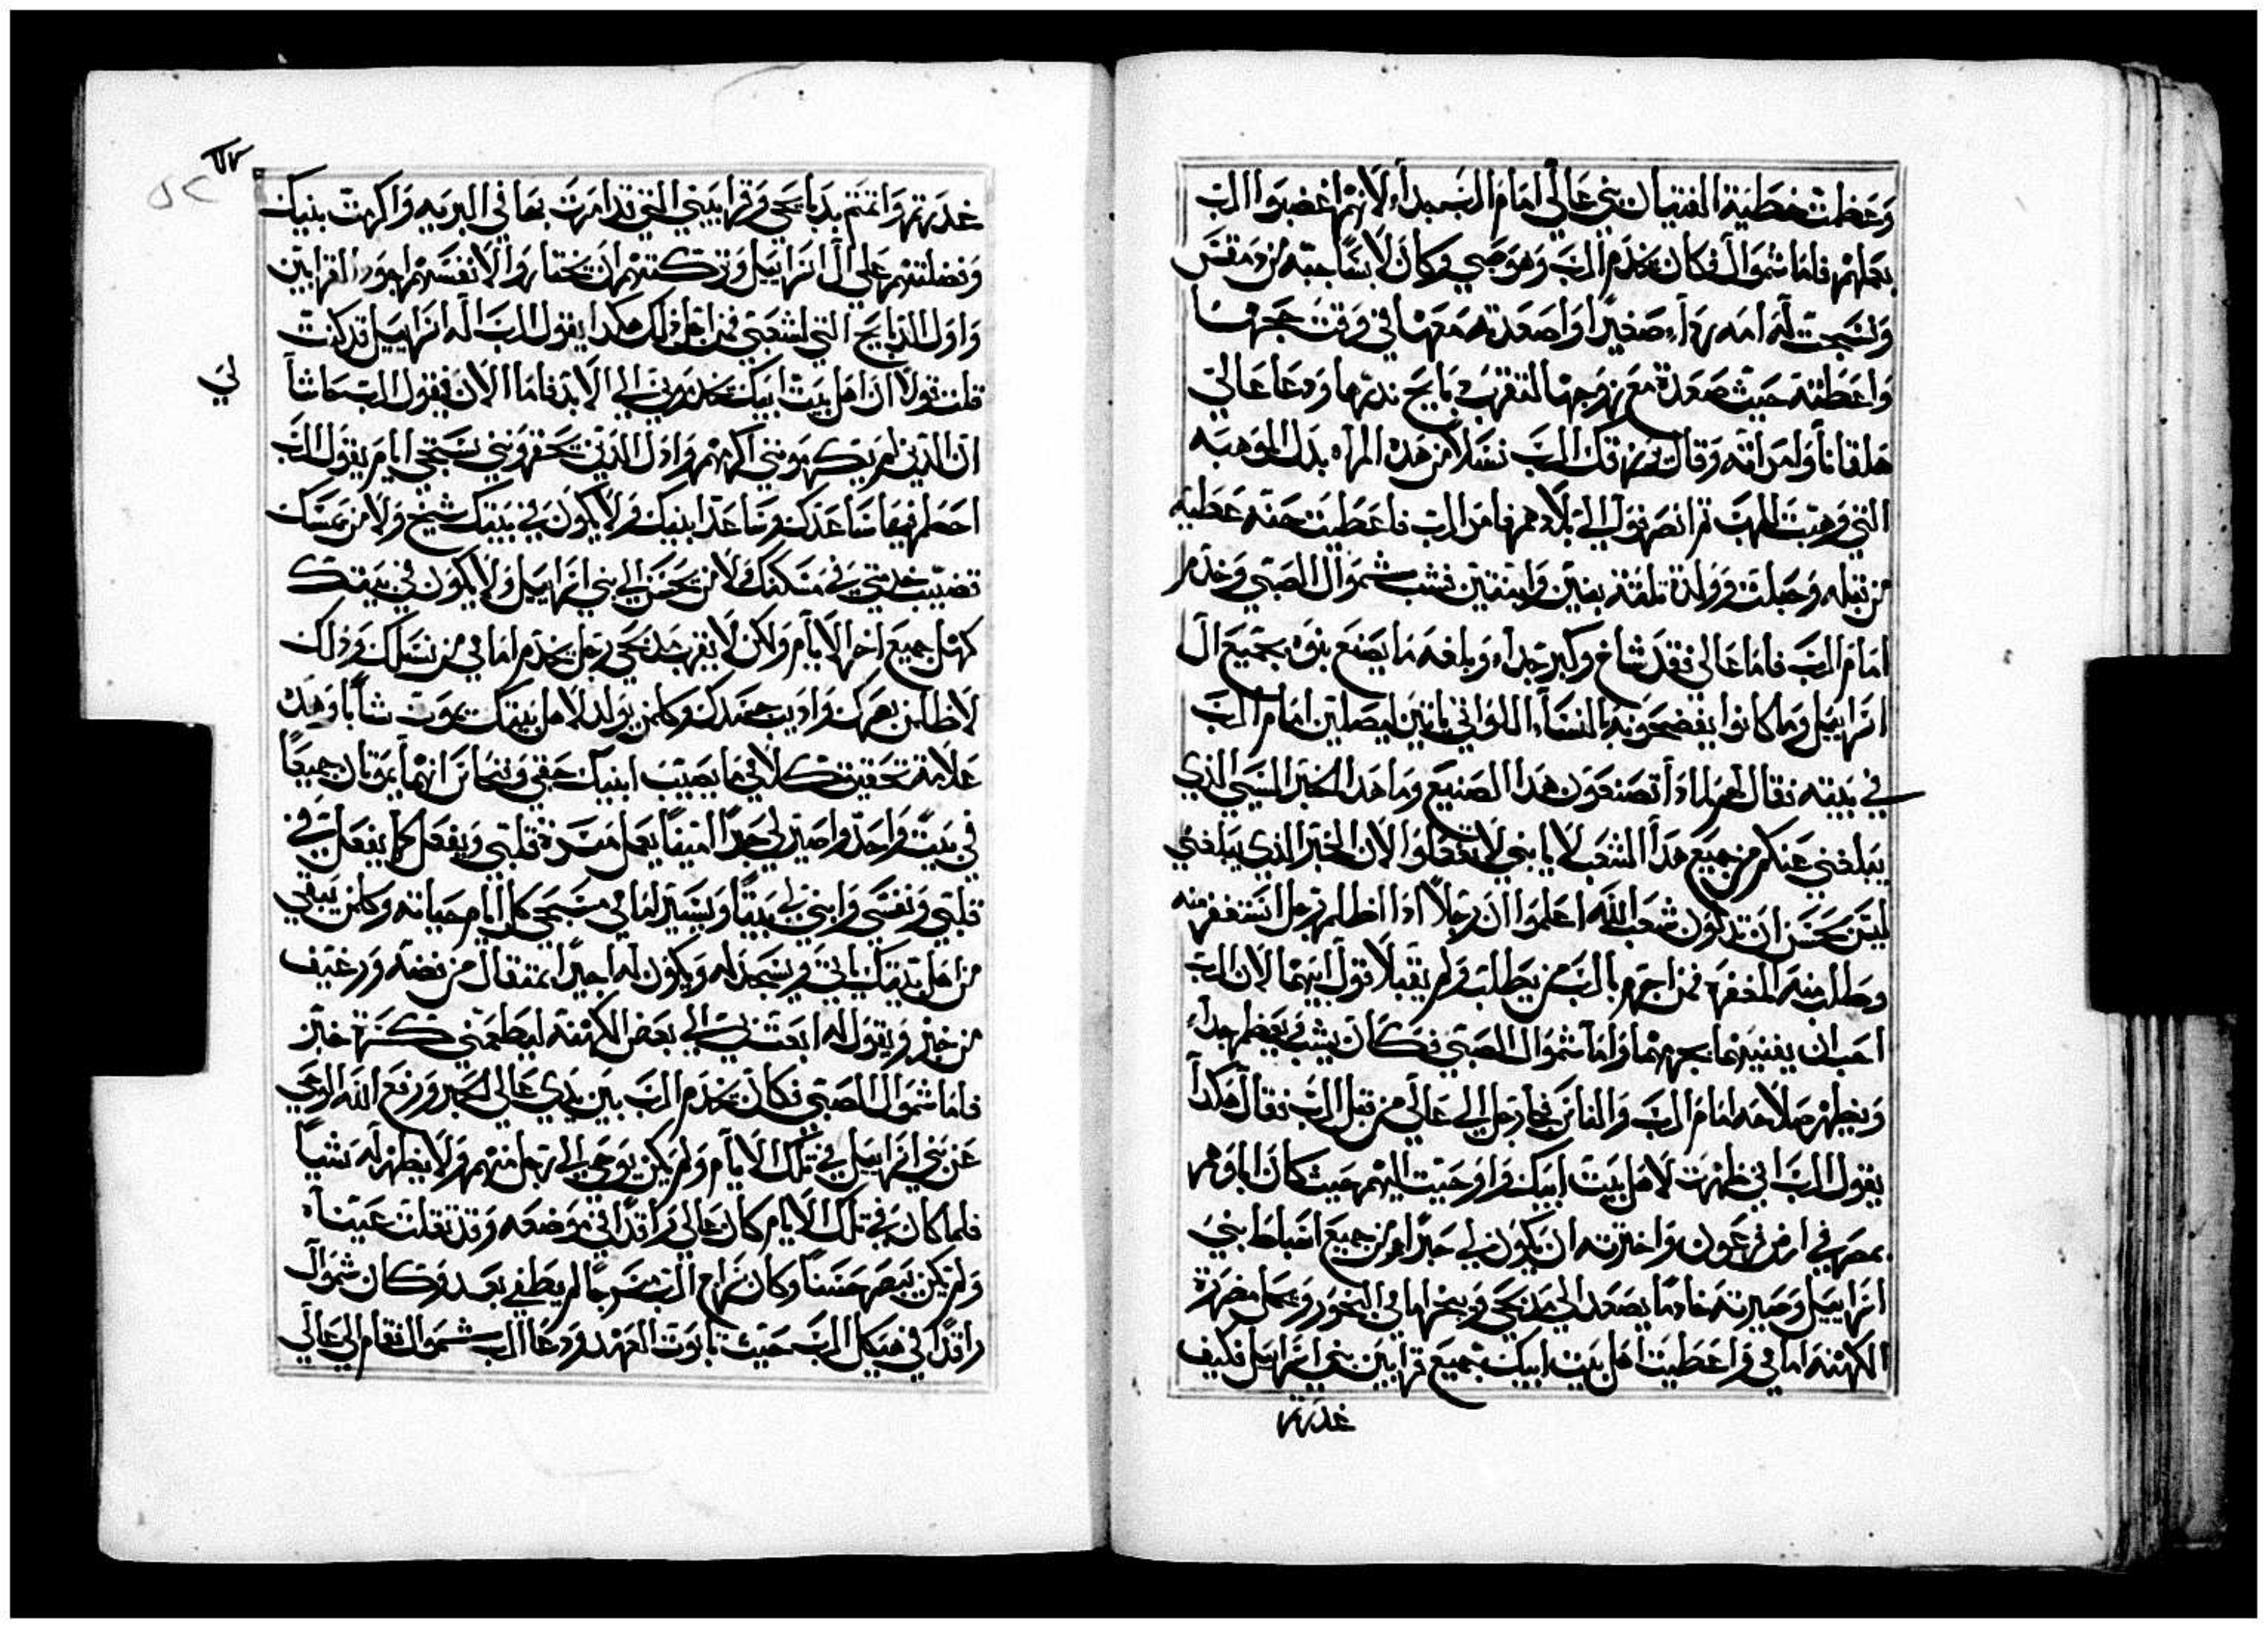 وعظمت خطية الفتيان بني عالي امام الرب جداً لانهم اغضبوا الرب
بعملهم فاما شموال فكان يخدم الرب وهو صبي وكان لابساً جبه من دمقس
ونسجت له امه رداء صغيراً واصعدته معها في وقت حجها
واعطته حيث صعدة مع زوجها لتقرب دبايح ندرها ودعا عالي
هلقانا وامراته وقال يرزقك الرب نسلا من هده المراه بدل الموهبه
التي وهبت للرب ثم انصرفوا الي بلادهم فامر الرب فاعطيت حنه عطيه
من قبله وحبلت وولدة تلثة بنين وابنتين فشب شموال الصبي وخدم
امام الرب فاما عالي فقد شاخ وكبر جداً وبلغه ما يصنع بنوه بجميع ال
اسراييل وما كانوا يفضحونه بالنساء اللواتي ياتين ليصلين امام الرب
في بيته فقال لهم لمادا تصنعون هدا الصنيع وما هدا الخبر السي الذي
يبلغني عنكم من جميع هدا الشعب لا يا بني لا تفعلوا لان الخبر الذي يبلغني
ليس بحسن ان تدكون شعب الله اعلموا ان رجلاً اذا اظلم رجل استغفر منه
وطلب منه المغفرة فمن اجرم بالرب من يطلب ولم يقبلا قول ابيهما لان الرب
احب ان يفنيهما بجرمهما واما شموال الصبي فكان يشب ويعظم جداً
ويظهر صلاحه امام الرب والناس فجا رجل الي عالي من قبل الرب فقال هكدا
يقول الرب اني ظهرت لاهل بيت ابيك واوحيت اليهم حيث كان اباوهم
بمصر في ارض فرعون واخترته ان يكون لي حبراً من جميع اسباط بني
اسراييل وصيرته خادما يصعد الي مدبحي ويبخر امامي البخور ويحمل مضرة
الكهنه امامي واعطيت اهل بيت ابيك جميع قرابين بني اسراييل فكيف
غدرتم
غدرتم واتمتم بدبايحي وقرابيني التي قد امرت بها في البريه واكرمت بنيك
وفضلتهم علي ال اسراييل وتركتهم ان يختاروا لانفسهم اجود القرابين
واول الذبايح التي لشعبي فمن اجل ذلك هكدا يقول الرب اله اسراييل قد كنت
قلت قولا ان اهل بيت ابيك يخدمونني الي الابد فاما الان فيقول الرب حاشا
لي
ان الذين يكرمونني اكرمهم وادل الذين يحقرونني ستجي ايام يقول الرب
احطم فيها ساعدك وساعد ابنيك ولا يكون في بيتك شيخ ولا من يمسك
قضيب خدمتي في مسكنك ولا من يحسن الي بني اسراييل ولا يكون في بيتك
كهل جميع اخر الايام ولكن لا يفر جد نحي رجل يخدم امامي من نسلك وذلك
لاظلم بصرك واديب جسدك وكلمن يولد لاهل بيتك يموت شاباً وهده
علامة تحقيق كلامي ما يصيب ابنيك حفني وفنحاس انهما يموتان جميعاً
في بيت واحد واصير لي حبرا امينا يعمل مسرة قلبي ويفعل كما يفعل في
قلبي ونفسي وابني له بيتا ويسير امامي مسيحي كل ايام حياته وكلمن يبقي
من اهل بيتك ياتي ويسجد له ويكون له اجيراً بمتقال من فضه ورغيف
من خبز ويقول له ابعت بي الي بعض الكهنه ليطعمني كسرة خبز
فاما شموال الصبي فكان يخدم الرب بين يدي عالي الحبر ورفع الله الوحي
عن بني اسراييل في تلك الايام ولم يكن يوحي الي رجل منهم ولا يظهر له شياً
فلما كان في تلك الايام كان عالي راقداً في موضعه وقد تقلت عيناه
ولم يكن يبصر حسنا وكان سراج الرب مسرجا لم يطفي بعد وكان شموال
راقداً في هيكل الرب حيث تابوت العهد ودعا الرب شموال فقام الي عالي